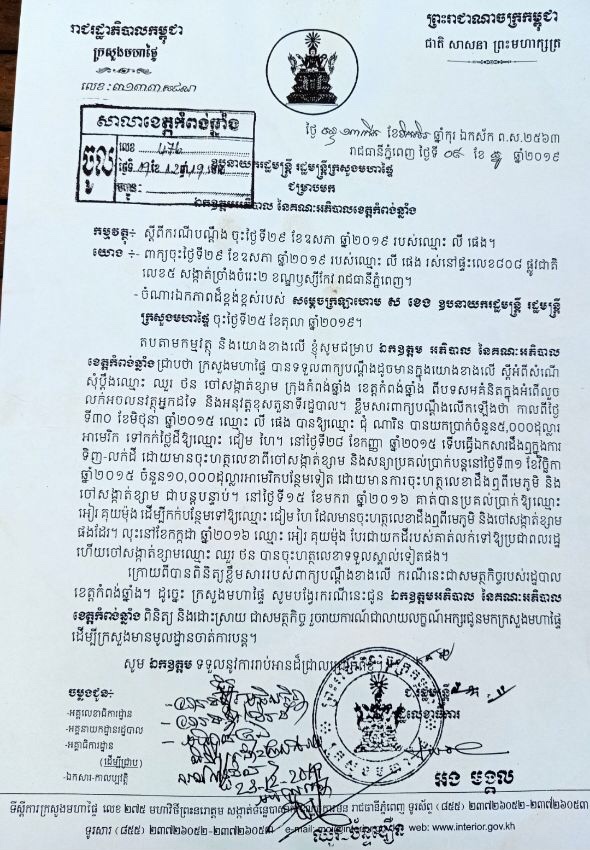 រាជរដ្ឋាភិបាលកម្ពុជា
ក្រសួងមហាផ្ទៃ
លេខ:
ព្រះរាជាណាចក្រកម្ពុជា
ជាតិ សាសនា ព្រះមហាក្សត្រ
សាលាខេត្តកំពង់ឆ្នាំង
ចូល
លេខ 476
ថ្ងៃទី
ថ្ងៃ ឆ្នាំកុរ ឯកស័ក ព.ស.២៥៦៣
រាជធានីភ្នំពេញ ថ្ងៃទី ០៤ ខែ ឆ្នាំ២០១៩
ឧបនាយករដ្ឋមន្ត្រី រដ្ឋមន្ត្រីក្រសួងមហាផ្ទៃ
ជម្រាបមក
ឯកឧត្តមអភិបាល នៃគណៈអភិបាលខេត្តកំពង់ឆ្នាំង
កម្មវត្ថុ÷ ស្តីពីករណីបណ្តឹង ចុះថ្ងៃទី២៩ ខែឧសភា ឆ្នាំ២០១៩ របស់ឈ្មោះ លី ផេង។
យោង ÷- ពាក្យចុះថ្ងៃទី២៩ ខែឧសភា ឆ្នាំ២០១៩ របស់ឈ្មោះ លី ផេង រស់នៅផ្ទះលេខ៨០៨ ផ្លូវជាតិ
លេខ៥ សង្កាត់ច្រាំងចំរេះ២ ខណ្ឌឫស្សីកែវ រាជធានីភ្នំពេញ។
- ចំណារឯកភាពដ៏ខ្ពង់ខ្ពស់របស់ សម្តេចក្រឡាហោម ស ខេង ឧបនាយករដ្ឋមន្ត្រី រដ្ឋមន្ត្រី
ក្រសួងមហាផ្ទៃ ចុះថ្ងៃទី២៥ ខែតុលា ឆ្នាំ២០១៩។
តបតាមកម្មវត្ថុ និងយោងខាងលើ ខ្ញុំសូមជម្រាប ឯកឧត្តម អភិបាល នៃគណៈអភិបាល
ខេត្តកំពង់ឆ្នាំងជ្រាបថា ក្រសួងមហាផ្ទៃ បានទទួលពាក្យបណ្តឹងដូចមានក្នុងយោងខាងលើ ស្តីអំពីសំណើ
សុំប្តឹងឈ្មោះ ឈួរ ថន ចៅសង្កាត់ខ្សាម ក្រុងកំពង់ឆ្នាំង ខេត្តកំពង់ឆ្នាំង ពីបទសមគំនិតក្នុងអំពើលួច
លក់អចលនវត្ថុអ្នកដទៃ និងអនុវត្តខុសតួនាទីរដ្ឋបាល។ ខ្លឹមសារពាក្យបណ្តឹងលើកឡើងថា កាលពីថ្ងៃ
ទី៣០ ខែមិថុនា ឆ្នាំ២០១៥ ឈ្មោះ លី ផេង បានឱ្យឈ្មោះ ជុំ ណារិន បានយកប្រាក់ចំនួន៥,០០០ដុល្លារ
អាមេរិក ទៅកក់ថ្លៃដីឱ្យឈ្មោះ ជៀម ហៃ។ នៅថ្ងៃទី២៨ ខែកញ្ញា ឆ្នាំ២០១៥ ទើបធ្វើឯកសារដឹងឮក្នុងការ
ទិញ-លក់ដី ដោយមានចុះហត្ថលេខាពីចៅសង្កាត់ខ្សាម និងសន្យាប្រគល់ប្រាក់បន្តនៅថ្ងៃទី៣១ ខែវិច្ឆិកា
ឆ្នាំ២០១៥ ចំនួន១០,០០០ដុល្លារអាមេរិកបន្ថែមទៀត ដោយមានការចុះហត្ថលេខាដឹងឮពីមេភូមិ និង
ចៅសង្កាត់ខ្សាម ជាបន្តបន្ទាប់។ នៅថ្ងៃទី១៥ ខែមករា ឆ្នាំ២០១៦ គាត់បានប្រគល់ប្រាក់ឱ្យឈ្មោះ
អៀរ គុយម៉ុង ដើម្បីកក់បន្ថែមទៅឱ្យឈ្មោះ ជៀម ហៃ ដែលមានចុះហត្ថលេខាដឹងឮពីមេភូមិ និងចៅសង្កាត់ខ្សាម
ផងដែរ។ លុះនៅខែកក្កដា ឆ្នាំ២០១៦ ឈ្មោះ អៀរ គុយម៉ុង បែរជាយកដីរបស់គាត់លក់ទៅឱ្យប្រជាពលរដ្ឋ
ហើយចៅសង្កាត់ខ្សាមឈ្មោះ ឈួរ ថន បានចុះហត្ថលេខាទទួលស្គាល់ទៀតផង។
ក្រោយពីបានពិនិត្យខ្លឹមសាររបស់ពាក្យបណ្តឹងខាងលើ ករណីនេះជាសមត្ថកិច្ចរបស់រដ្ឋបាល
ខេត្តកំពង់ឆ្នាំង។ ដូច្នេះ ក្រសួងមហាផ្ទៃ សូមបង្វែរករណីនេះជូន ឯកឧត្តមអភិបាល នៃគណៈអភិបាល
ខេត្តកំពង់ឆ្នាំង ពិនិត្យ និងដោះស្រាយ ជាសមត្ថកិច្ច រួចរាយការណ៍ជាលាយលក្ខណ៍អក្សរជូនមកក្រសួងមហាផ្ទៃ
ដើម្បីក្រសួងមានមូលដ្ឋានចាត់ការបន្ត។
សូម ឯកឧត្តម ទទួលនូវការរាប់អានដ៏ជ្រាលជ្រៅអំពីខ្ញុំ។
ចម្លងជូន÷
-អគ្គលេខាធិការដ្ឋាន
-អគ្គនាយកដ្ឋានរដ្ឋបាល
-អគ្គាធិការដ្ឋាន
(ដើម្បីជ្រាប)
-ឯកសារ-កាលប្បវត្តិ
ជ.រដ្ឋមន្ត្រី
រដ្ឋលេខាធិការ
អង មង្គល
ទីស្តីការក្រសួងមហាផ្ទៃ លេខ ២៧៥ មហាវិថីព្រះនរោត្តម រាជធានីភ្នំពេញ ទូរស័ព្ទ (៨៥៥) ២៣៧២៦០៥២-២៣៧២៦០៥៣
ទូរសារ (៨៥៥) ២៣៧២៦០៥២-២៣៧២៦០៥៣ e-mail: web: www.interior.gov.kh